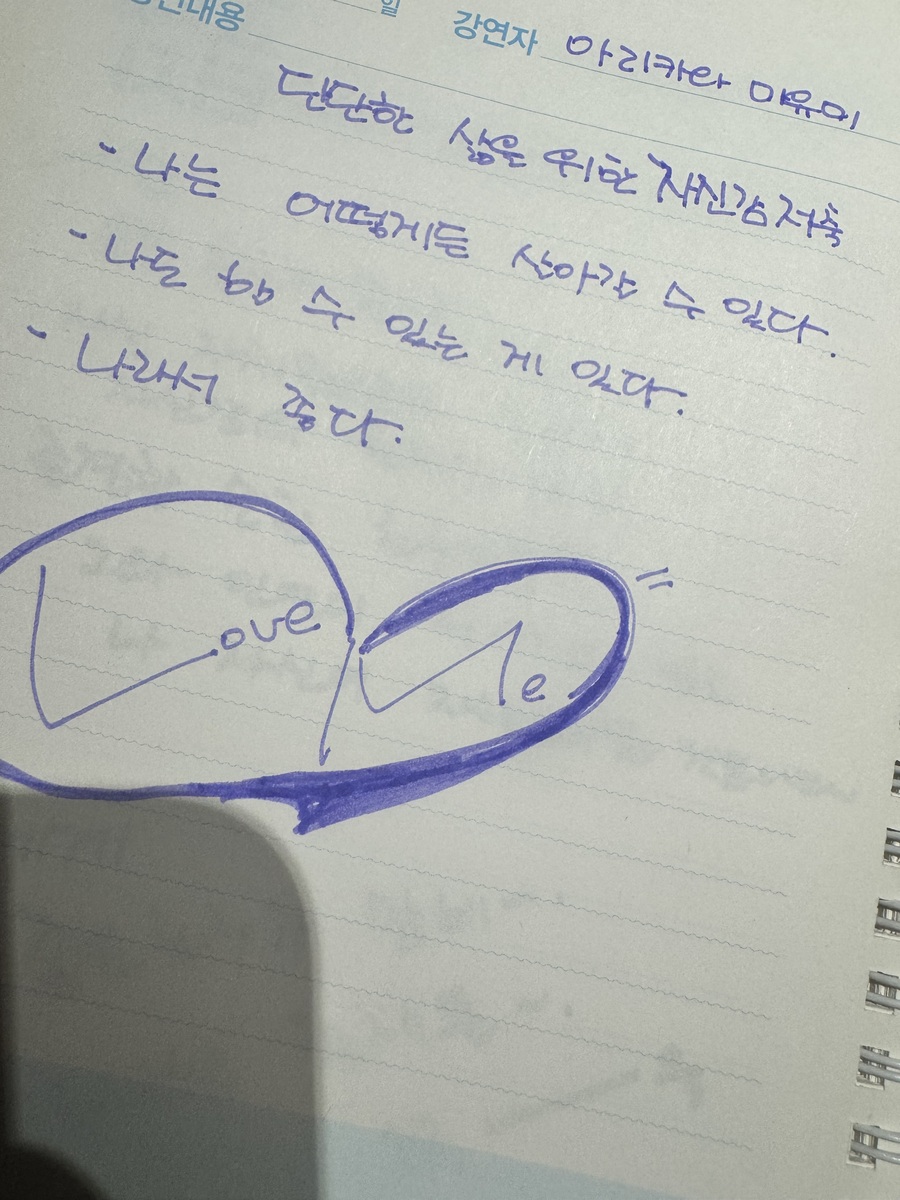 일 강연자 아리카라 마유미
내용
단단한 삶을 위한 자신감 저축
- 나는 어떻게든 살아갈 수 있다.
- 나도 할 수 있는 게 있다.
- 나라서 좋다.
Love Me